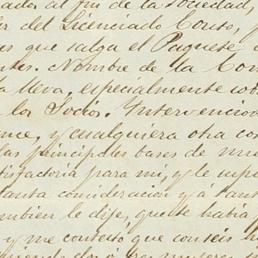 ados al fin de la Sociedad,
os del Licenciado Couso, y
es que salga el Paquete
ntes. Nombre de la Com
la lleva, especialmente sob
los Socios. Intervencion
nce, y cualquiera otra cos
las principales bases de nue
tisfactoria para mi, y le supl
tanta consideracion y á tant
mbien le dije, que le habia p
y me contestó que seis h